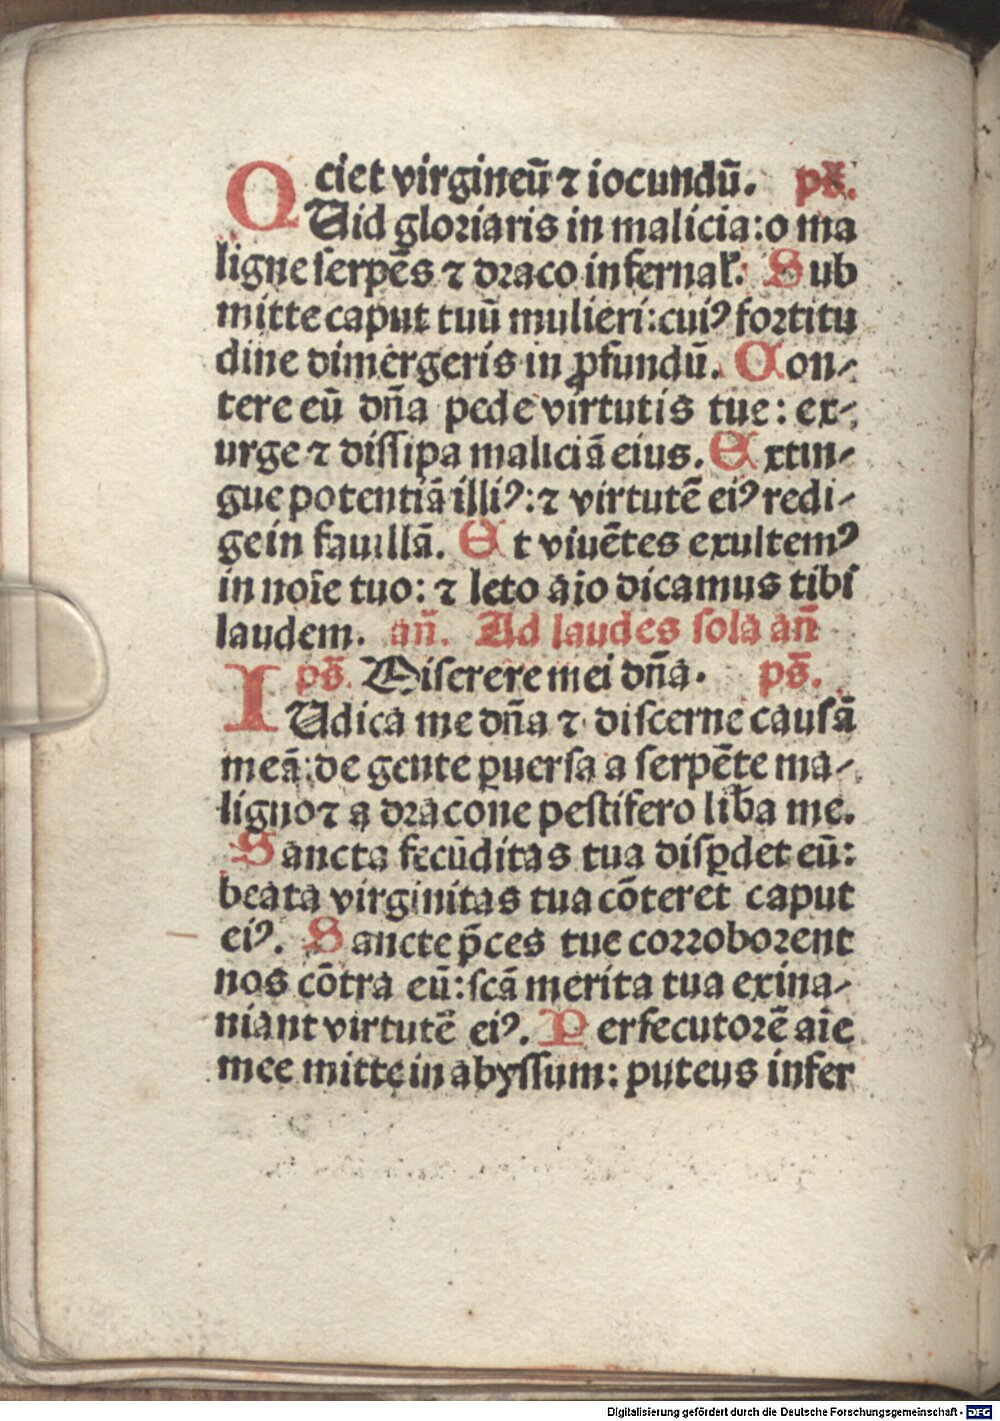 ciet virgineū ⁊ iocundū. pš.
QUid gloꝛiaris in malicia:o ma
ligne ſerpēs ⁊ dꝛaco infernaꝉ. Sub
mitte caput tuū mulieri:cuiꝰ foꝛtitu
dine dimergeris in ꝓfundū. Con⸗
tere eū dn̄a pede virtutis tue: ex⸗
urge ⁊ diſſipa maliciā eius. Extin⸗
gue potentiā illiꝰ:⁊ virtutē eiꝰ redi⸗
ge in fauillā. Et viuētes exultemꝰ
in noīe tuo: ⁊ leto aīo dicamus tibi
laudem. an̄. Ad laudes ſola an̄
pš. Miſerere mei dn̄a. pš.
IUdica me dn̄a ⁊ diſcerne cauſā
meā:de gente ꝑuerſa a ſerpēte ma⸗
ligno ⁊ a dꝛacone peſtifero lib̄a me.
Sancta fecūditas tua diſꝑdet eū:
beata virginitas tua cōteret caput
eiꝰ. Sancte p̄ces tue coꝛꝛoboꝛent
nos cōtra eū:ſcā merita tua exina⸗
niant virtutē eiꝰ. Perſecutoꝛē aīe
mee mitte in abyſſum: puteus infer
Digitalisierung gefördert durch die Deutsche Forschungsgemeinschaft - DFG